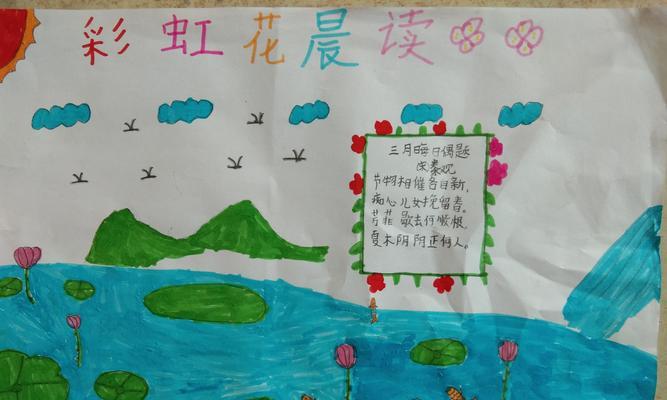 彩虹花晨读
三月晦日偶题
宋秦观
节物相催各自新,
痴心儿女挽留春。
芳菲歇去何须恨,
夏木阴阴正可人。